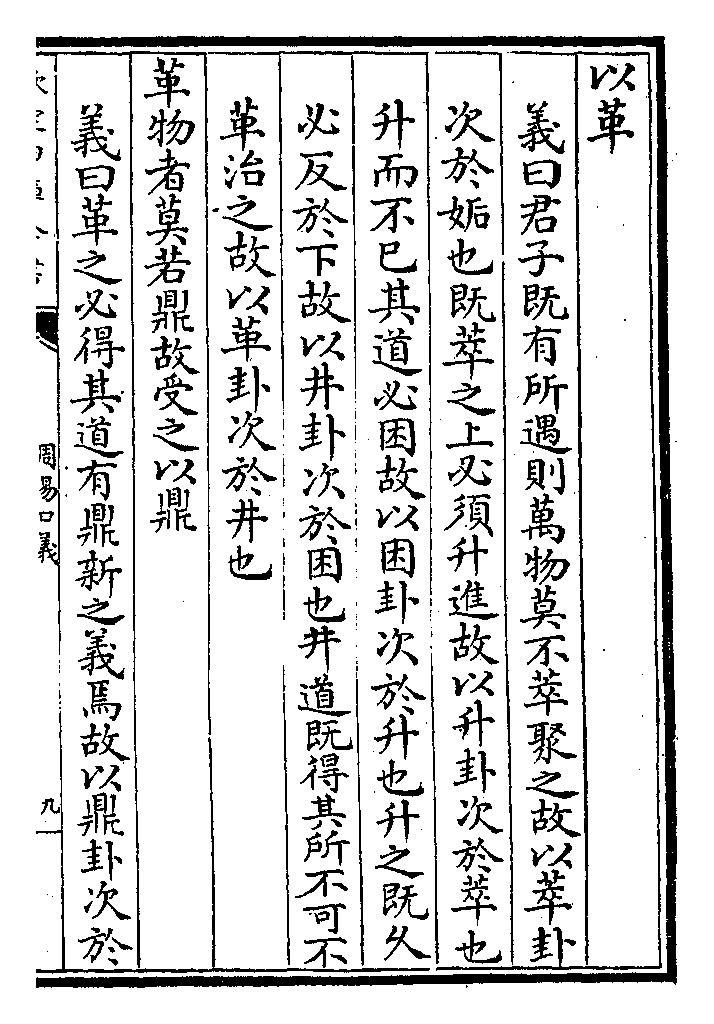 以革
義曰君子既有所遇則萬物莫不萃聚之故以萃卦
次於姤也既萃之上必須升進故以升卦次於萃也
升而不已其道必困故以困卦次於升也升之既久
必反於下故以井卦次於困也井道既得其所不可不
革治之故以革卦次於井也
革物者莫若鼎故受之以鼎
義曰革之必得其道有鼎新之義焉故以鼎卦次於
周易口義
九